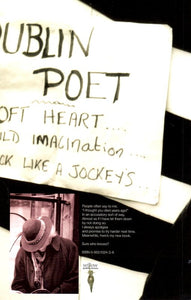 DUBLIN
POET
OFT HEART...
ILD IMAGINATION...
CK LIKE A JOCKEY'S...
People often say to me
"I thought you died years ago"
in an accusatory sort of way,
almost as if I have let them down
by not doing so.
I always apologise
and promise to try harder next time.
Meanwhile, here's my new book...